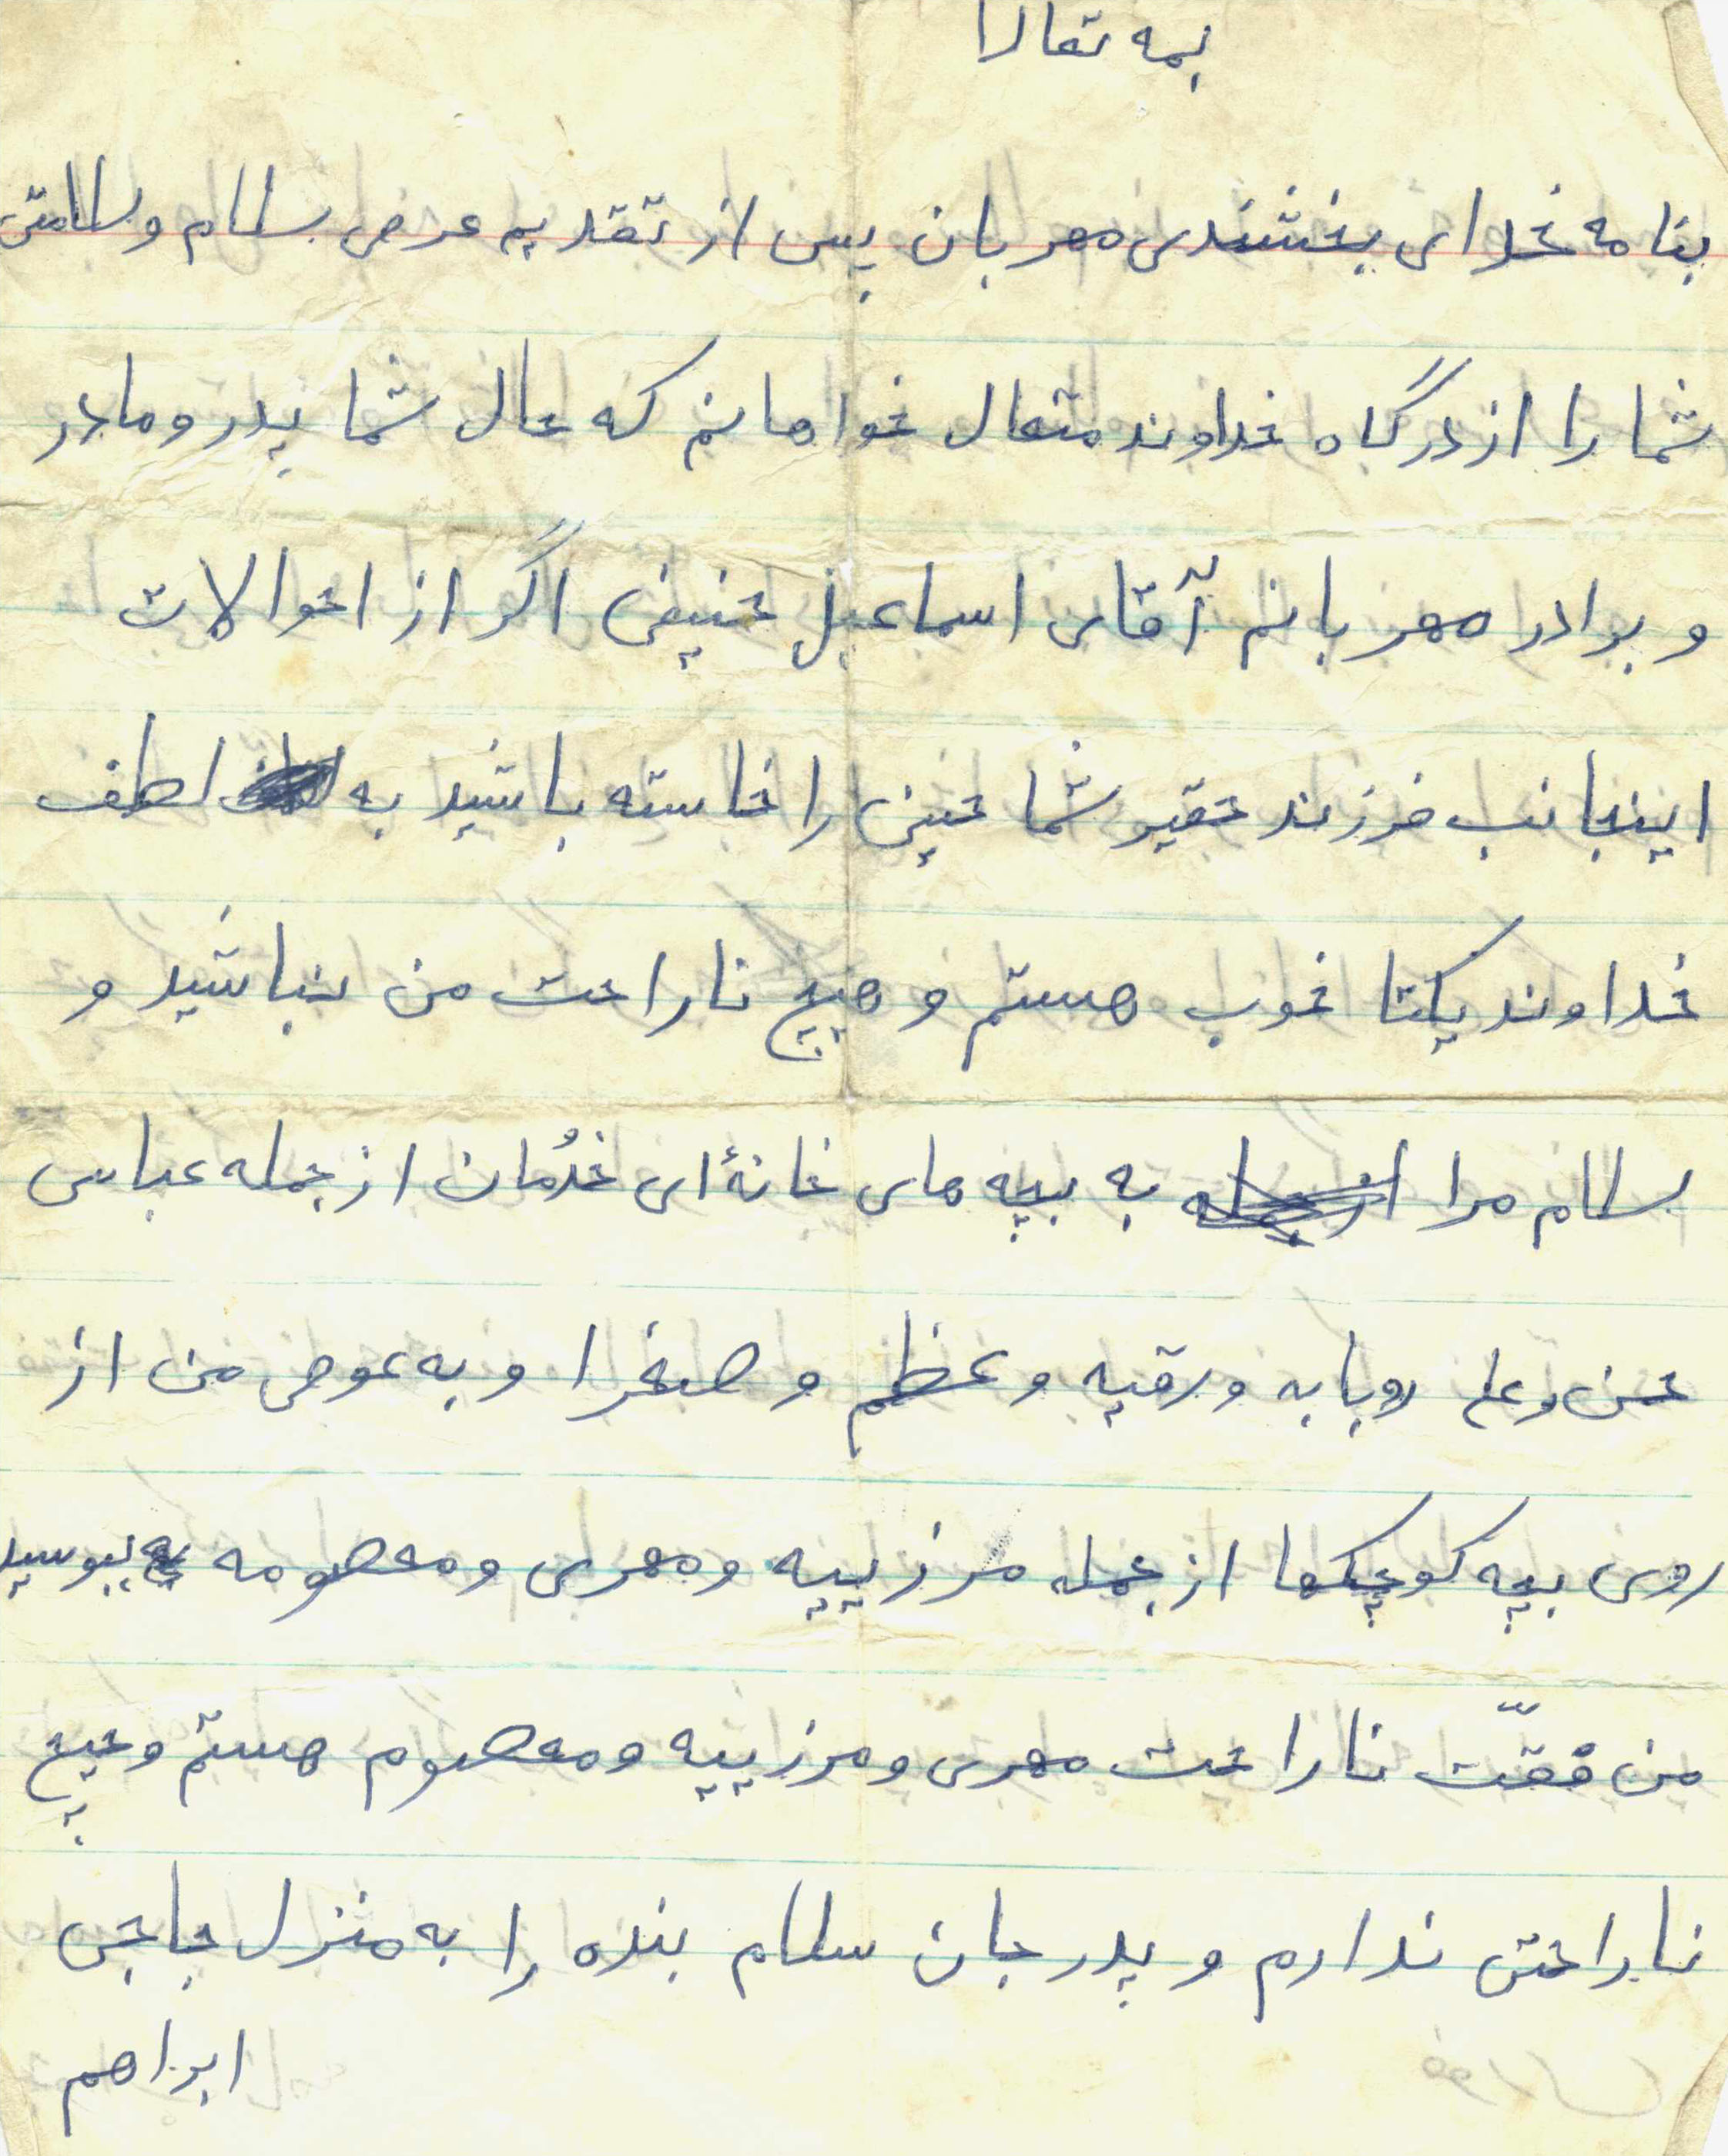 بمه تعالا
بنامه خدای بخشندی مهربان پس از تقدیم عرض سلام و سلامتی
شما را از درگاه خداوند متعال خواهانم که حال شما پدر و مادر
و برادر مهربانم آقای اسماعیل حنیفی اگر از احوالات
اینجانب فرزند حقیر شما حنیفی را خاسته باشید به لطف
خداوند یکتا خوب هستم و هیچ ناراحت من نباشید و
سلام مرا به بچه های خانۀ ای خدُمان از جمله عباس
حسن و علی روبابه و رقیه و عظم و صغرا و به عوض من از
روی بچه کوچکها از جمله مرزییه و مهری و معصومه ببوسید
من فقتّ ناراحت مهری و مرزییه و معصوم هستم و هیچ
ناراحتی ندارم و پدر جان سلام بنده را به منزل حاجی
ابراهم